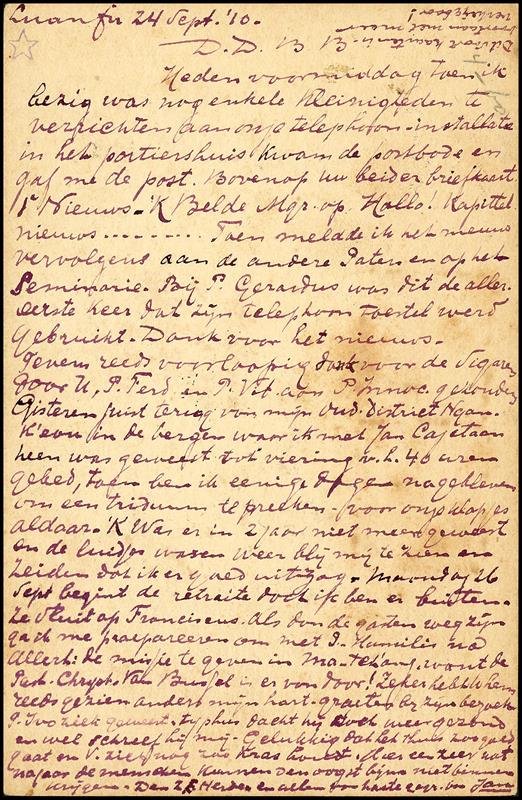 Luan fu 24 Sept. '10.
D. D. B B
Heden voormiddag toen ik
bezig was nog enkele kleinigheden te
verrichten aan onze telephoon-installatie
in het portiershuis kwam de postbode en
gaf me de post. Bovenop uw beider briefkaart
1e Nieuws - 'K Belde Mgr. op. Hallo! Kapittel
nieuws ......... Toen meldde ik het nieuws
vervolgens aan de andere Paters en op het
Seminarie. Bij P. Gerardus was dit de aller-
eerste keer dat zijn telephoon toestel werd
gebruikt. Dank voor het nieuws.
Tevens reeds voorloopig dank voor de Sigaren
door U, P. Ferd en P. Vit. aan P. Innoc. gehouden
Gisteren juist terug van mijn oud-district Ngan-
k'eou in de bergen waar ik met Jan Cajetaan
heen was geweest tot viering v. h. 40 uren
gebed, toen ben ik eenige dagen nagebleven
om een triduum te preeken - voor onze klapjes
aldaar. 'K Was er in 2 jaar niet meer geweest
en de luidjes waren weer blij mij te zien en
zeiden dat ik er goed uitzag - Maandag 26
Sept begint de retraite doch ik ben er buiten.
Ze sluit op Franciscus. Als dan de gasten weg zijn
ga ik me praepareeren om met P. Hamilis na
Allerh: de missie te geven in Ma-tchang, want de
Past. Chryst. Van Brussel is er van door! Zeker hebt U hem
reeds gezien anders mijn hart. groeten bij zijn bezoek
P. Ivo ziek geweest - typhus dacht hij doch weer gezond
en wel schreef hij mij. Gelukkig dat het thuis zoo goed
gaat en V. zich nog zoo kras houdt. Hier een zeer nat
najaar de menschen kunnen den oogst bijna niet binnen
krijgen. Den Z.E. Herden en allen van harte gegr. van Jan